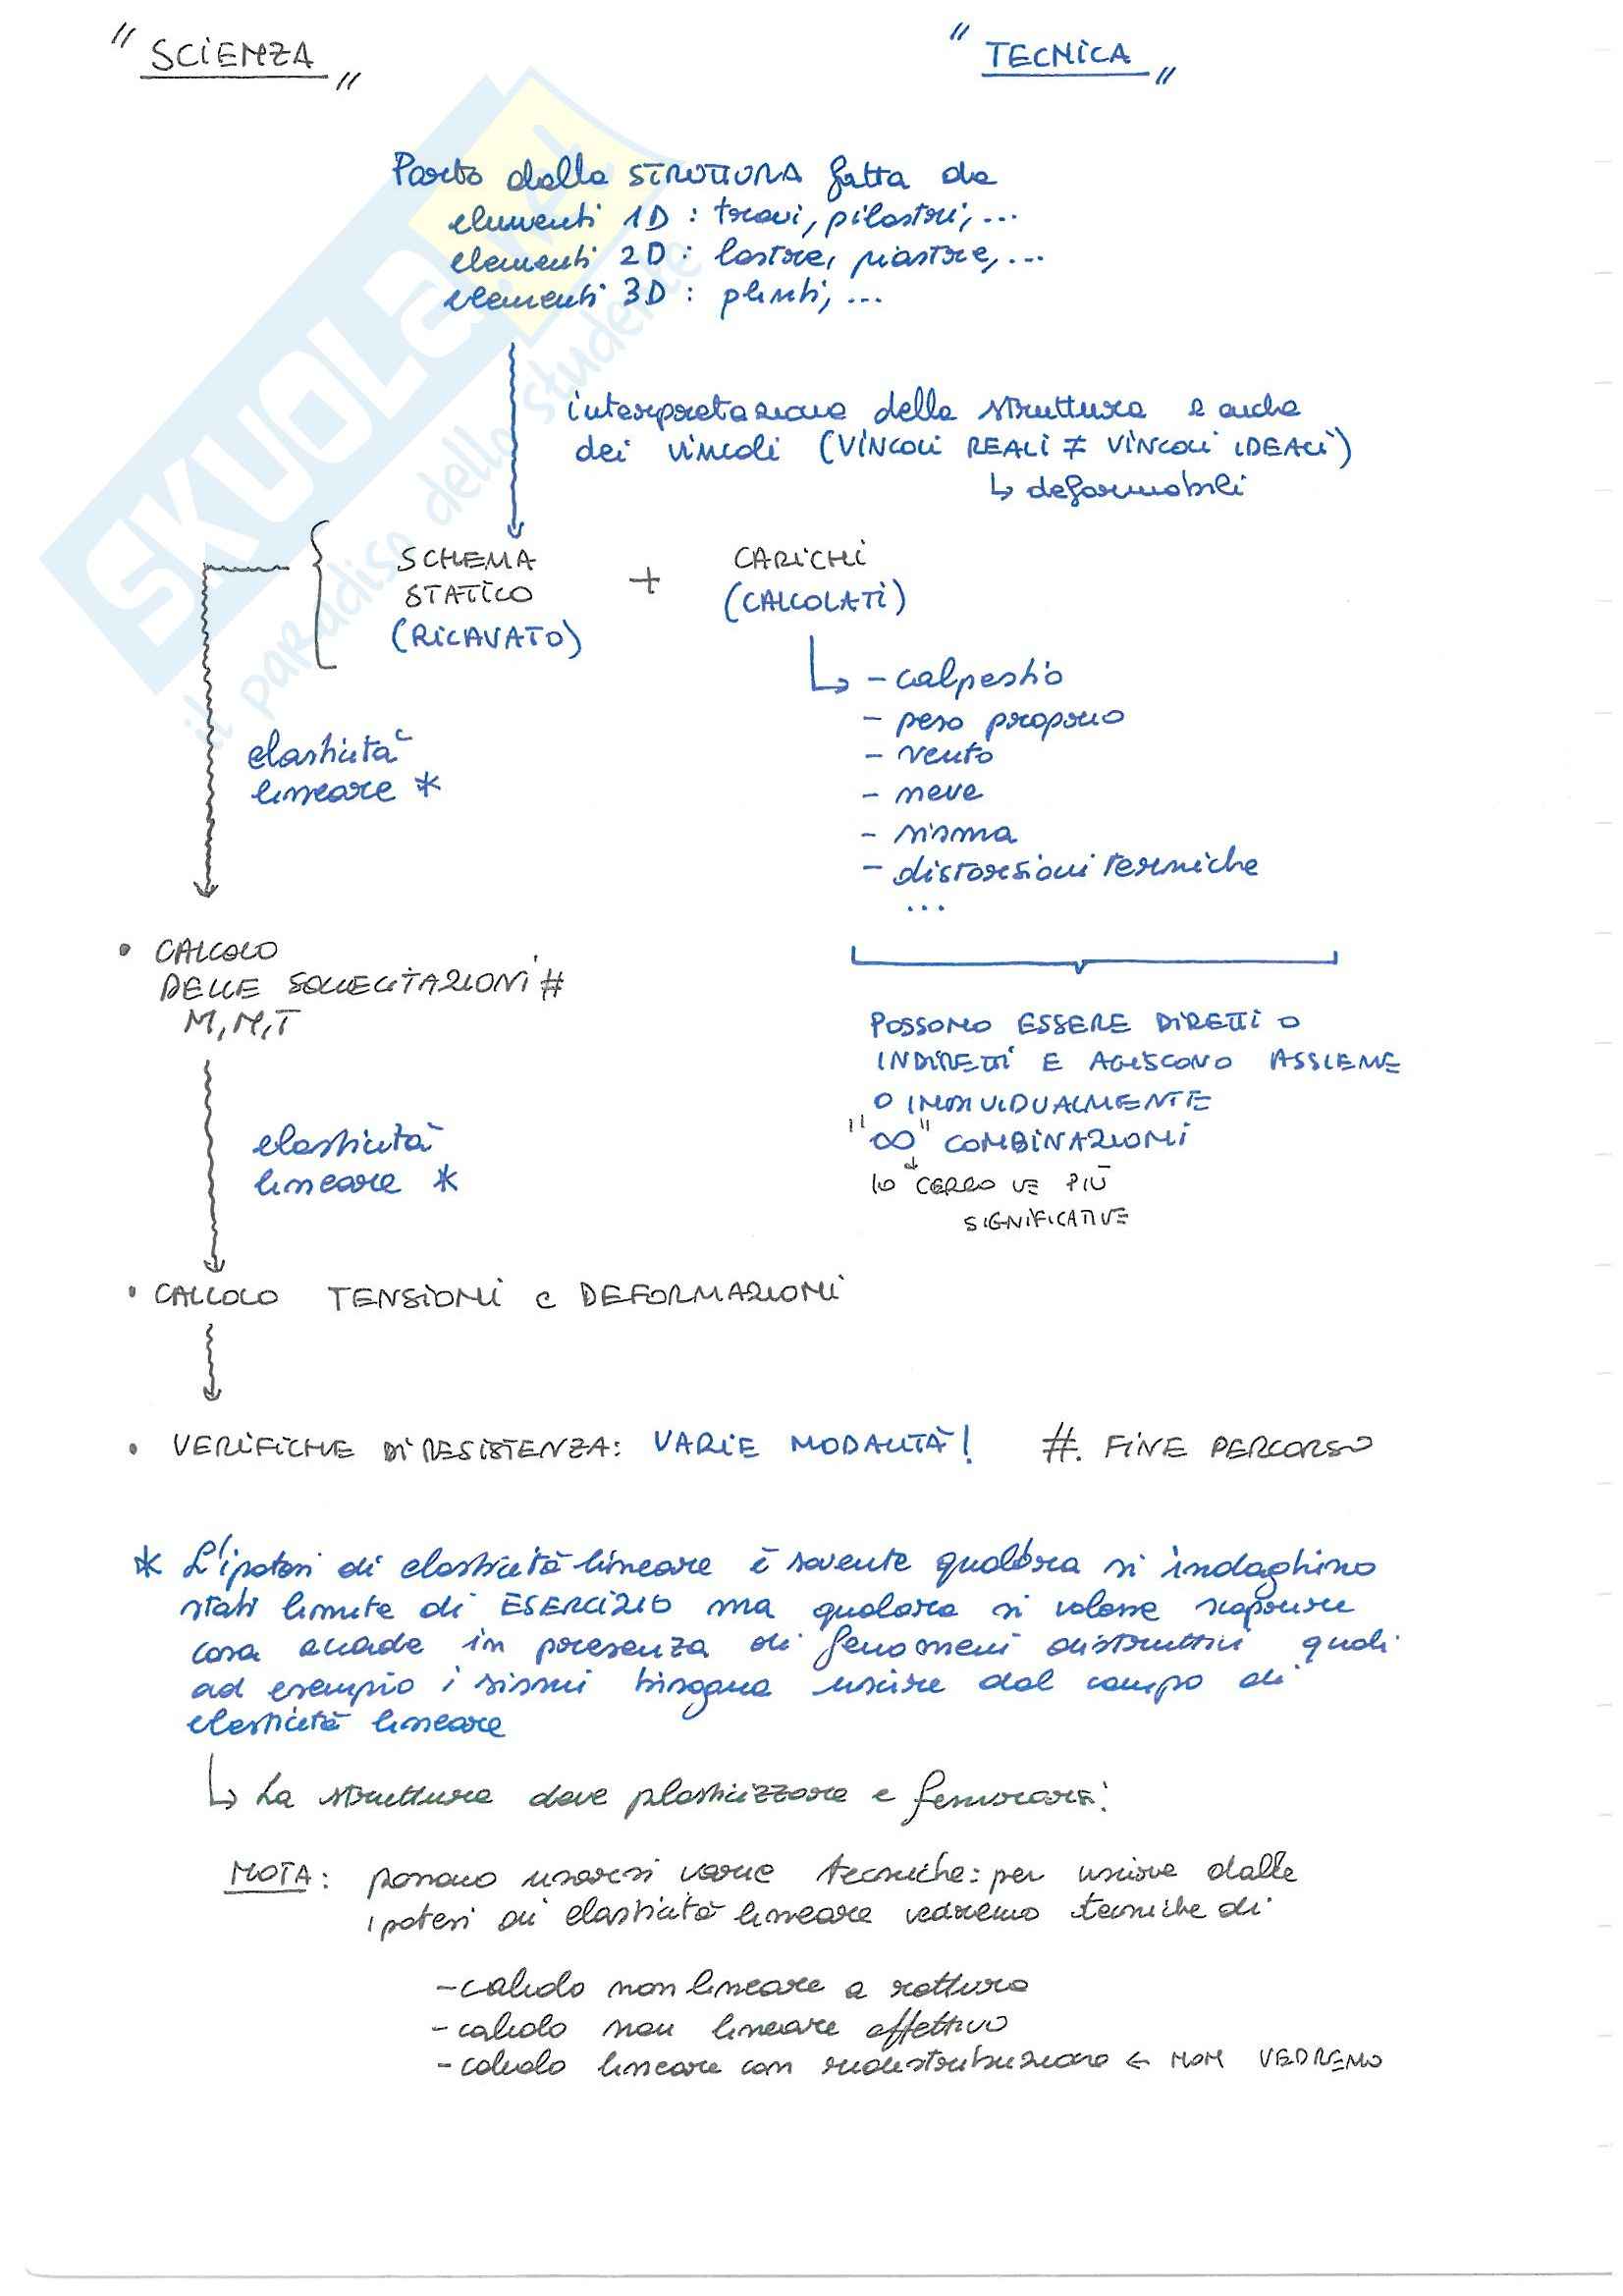 "SCIENZA"
"TECNICA"
Parto dalla STRUTTURA fatta da
elementi 1D : travi, pilastri, ...
elementi 2D : lastre, piastre, ...
elementi 3D : plinti, ...
interpretazione della struttura e anche
dei vincoli (VINCOLI REALI ≠ VINCOLI IDEALI)
↳ deformabili
SCHEMA
STATICO
(RICAVATO)
+
CARICHI
(CALCOLATI)
↳ - calpestio
- peso proprio
- vento
- neve
- sisma
- distorsioni termiche
...
elasticità
lineare *
• CALCOLO
DELLE SOLLECITAZIONI #
M, N, T
POSSONO ESSERE DIRETTI O
INDIRETTI E AGISCONO ASSIEME
O INDIVIDUALMENTE
"∞" COMBINAZIONI
IO CERCO LE PIÙ
SIGNIFICATIVE
elasticità
lineare *
• CALCOLO TENSIONI e DEFORMAZIONI
• VERIFICHE DI RESISTENZA: VARIE MODALITÀ! #. FINE PERCORSO
* L'ipotesi di elasticità lineare è sovente qualora si indaghino
stati limite di ESERCIZIO ma qualora si volesse scoprire
cosa accade in presenza di fenomeni distruttivi quali
ad esempio i sismi bisogna uscire dal campo di
elasticità lineare
↳ La struttura deve plasticizzare e fessurare!
NOTA: possono usarsi varie tecniche: per uscire dalle
ipotesi di elasticità lineare vedremo tecniche di
- calcolo non lineare a rottura
- calcolo non lineare effettivo
- calcolo lineare con ridistribuzione ← NON VEDREMO
SKUOLA.net
il paradiso dello studente